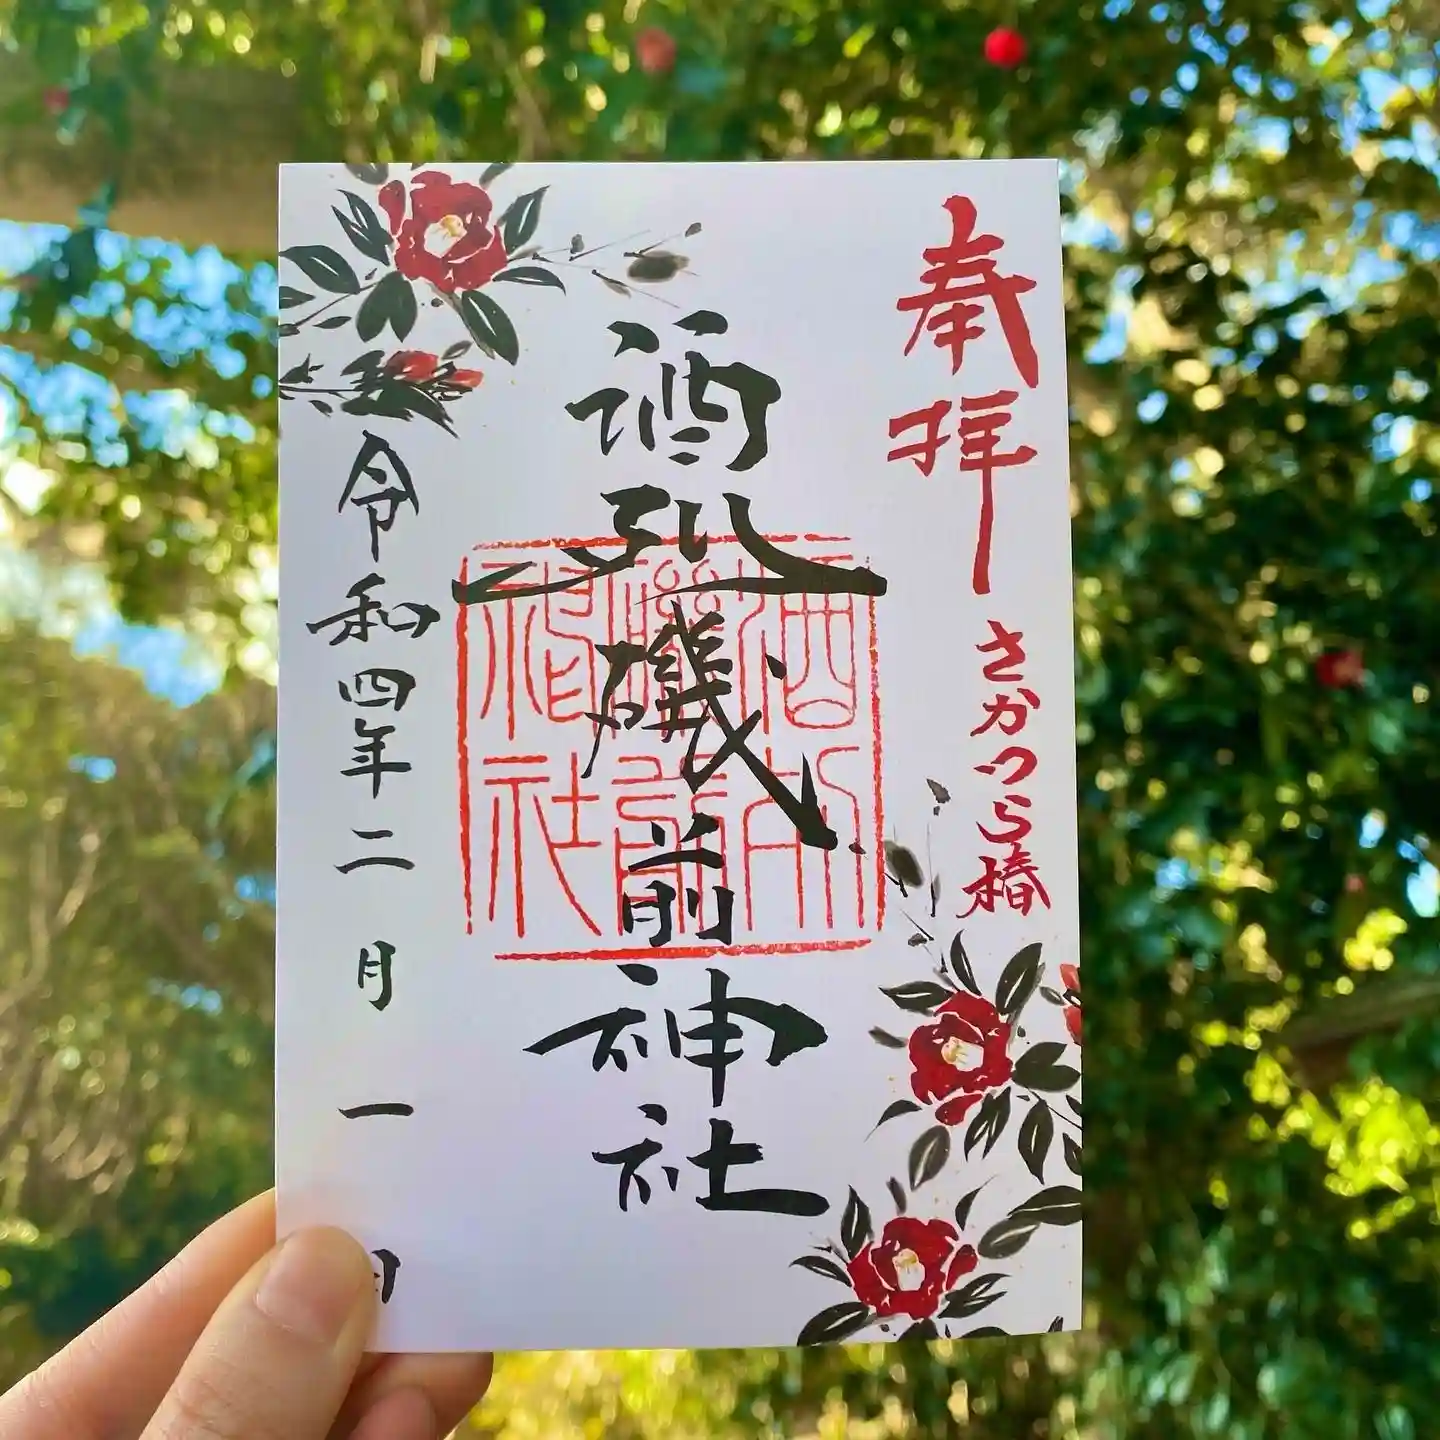 奉拝
さかつら椿
酒列磯前神社
酒列磯前神社
令和四年二月一日